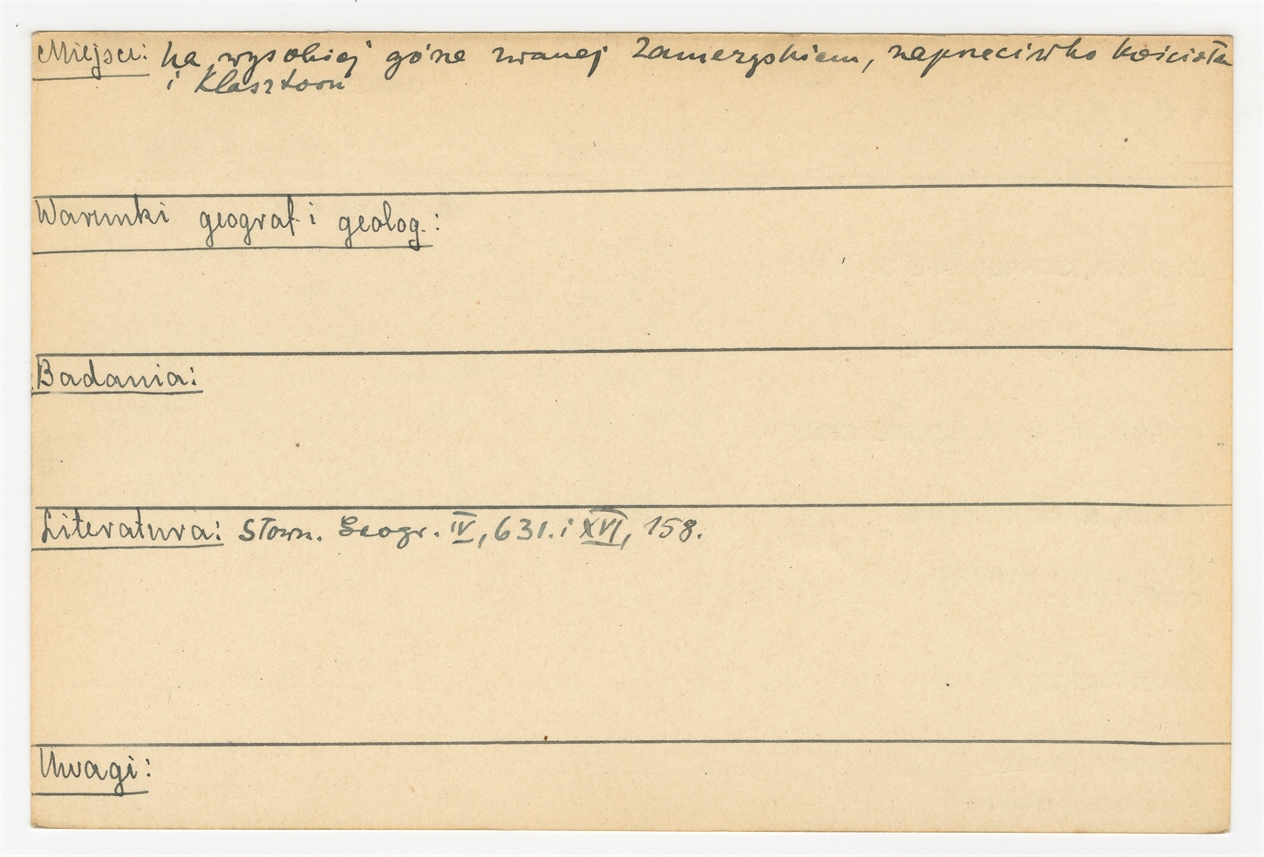 Miejsce: na wysokiej górze zwanej Zameczyskiem, naprzeciwko kościoła
i klasztoru
Warunki geograf. i geolog.:
Badania:
Literatura: Słown. Geogr. IV, 631. i XVI, 158.
Uwagi: